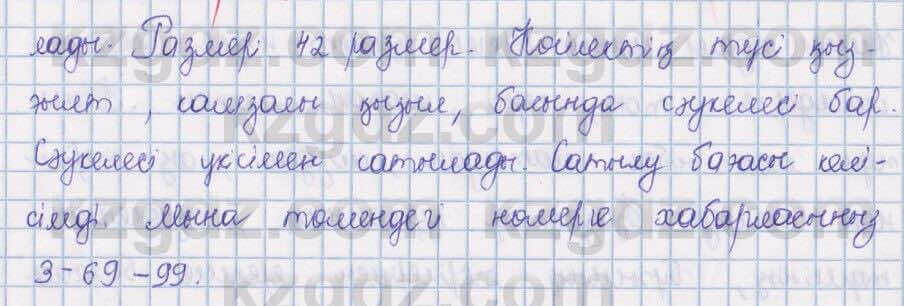 лады. Размері 42 размер. Көйлектің түсі қыз-
ғылт, камзолы қызыл, басында сәукелесі бар.
Сәукелесі үкісімен сатылады. Сатылу бағасы келі-
сімді. Мына төмендегі номерге хабарласыңыз
3-69-99.